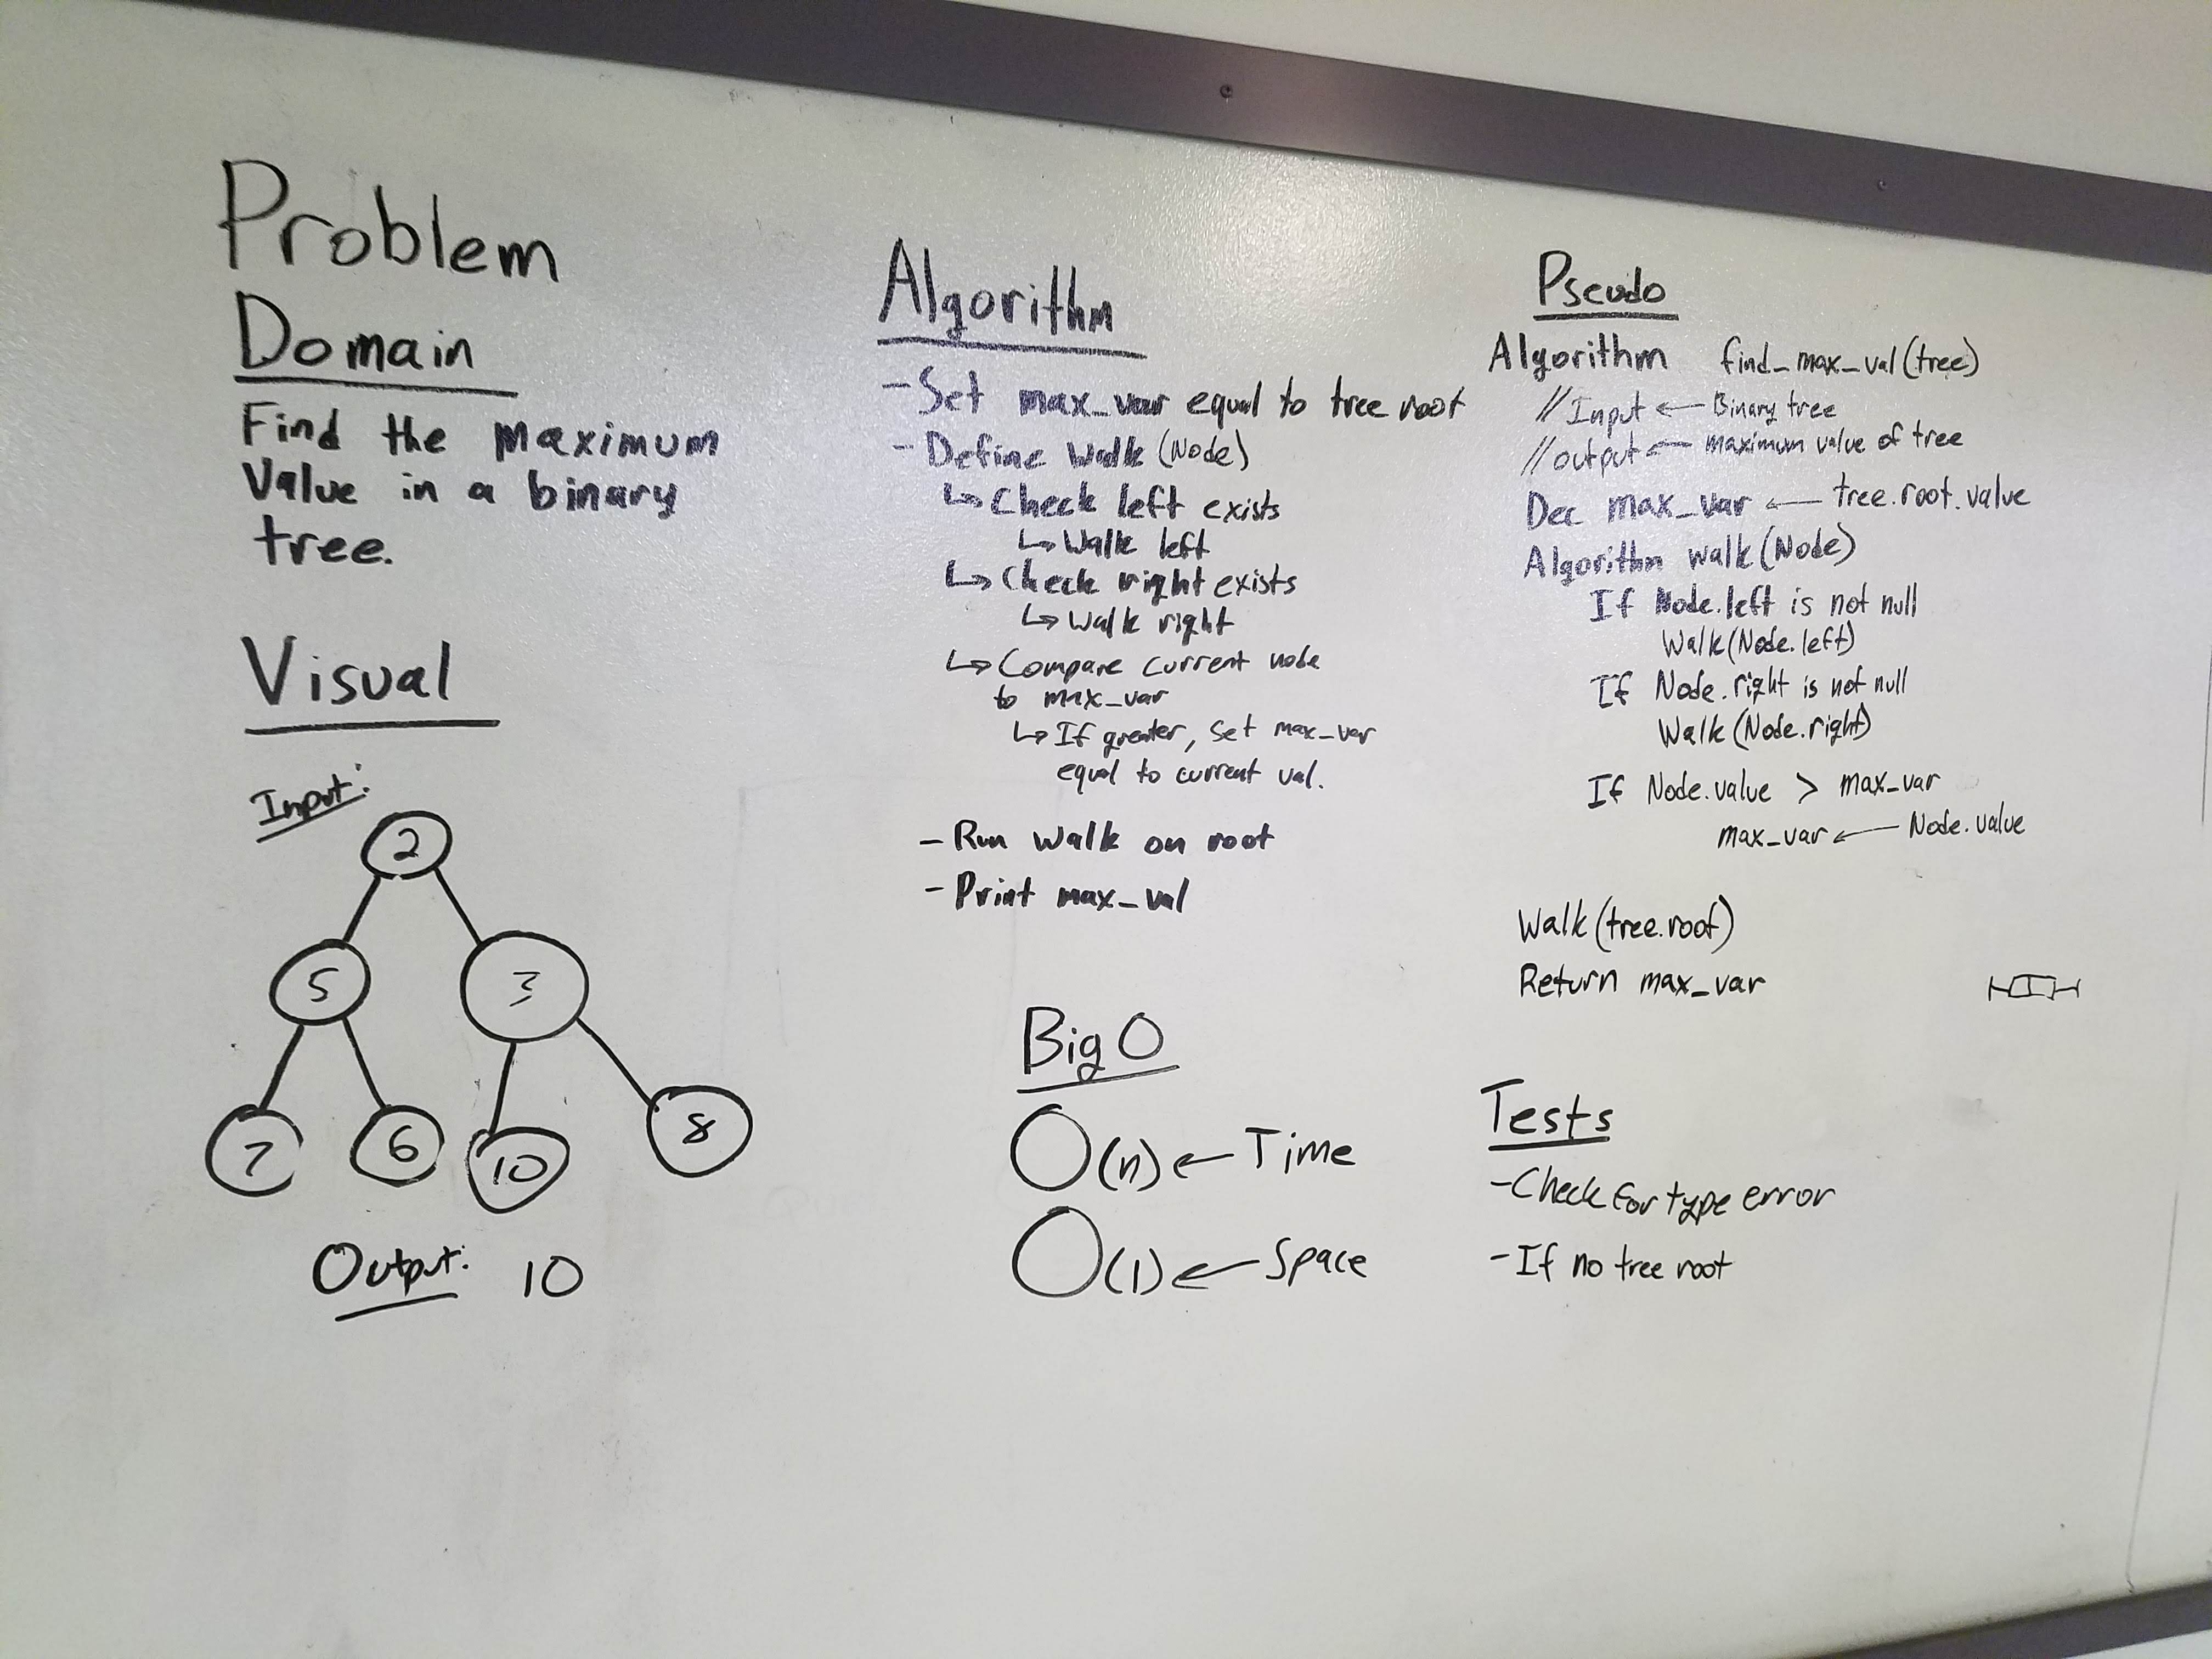 Problem
Domain
Find the maximum
Value in a binary
tree.
Visual
Input:
2
5
3
7
6
10
8
Output: 10
Algorithm
- Set max_var equal to tree root
- Define Walk (Node)
↳ Check left exists
↳ Walk left
↳ Check right exists
↳ Walk right
↳ Compare current node
to max_var
↳ If greater, set max_var
equal to current val.
- Run Walk on root
- Print max_val
Big O
O(n) ← Time
O(1) ← Space
Pseudo
Algorithm find_max_val(tree)
// Input ← Binary tree
// output ← maximum value of tree
Dec max_var ← tree.root.value
Algorithm walk(Node)
If Node.left is not null
Walk(Node.left)
If Node.right is not null
Walk(Node.right)
If Node.value > max_var
max_var ← Node.value
Walk(tree.root)
Return max_var
Tests
- Check for type error
- If no tree root